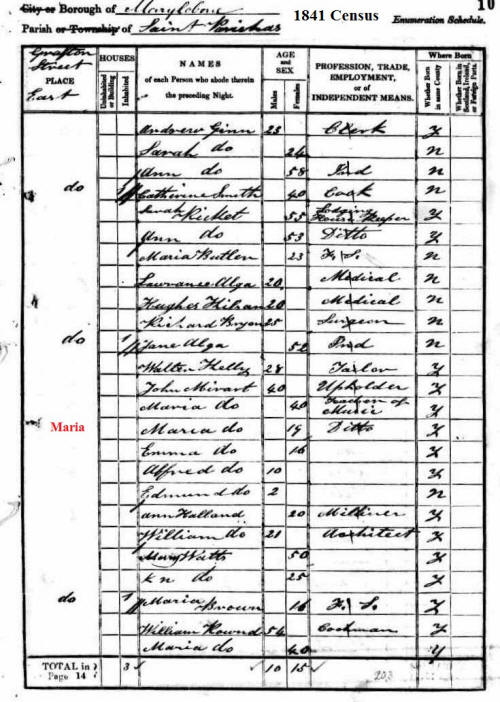 10
City or Borough of Marylebone
1841 Census
Enumeration Schedule.
Parish or Township of Saint Pancras
Grafton Street East
PLACE
HOUSES
Uninhabited or Building
Inhabited
NAMES
of each Person who abode therein
the preceding Night.
AGE
and
SEX
Males
Females
PROFESSION, TRADE,
EMPLOYMENT,
or of
INDEPENDENT MEANS.
Where Born
Whether Born in same County
Whether Born in Scotland, Ireland, or Foreign Parts.
Andrew Ginn 25 Clerk Y
Sarah do 24 N
Ann do 58 Ind N
do 1 Catherine Smith 40 Cook N
Sarah Ricket 55 Lodging House Keeper Y
Ann do 53 Ditto Y
Maria Butler 23 F. S. N
Lawrance Alga 20 Medical N
Hughes 20 Medical N
Richard Bryon 25 Surgeon N
do 1 Jane Alga 52 Ind N
Walter Kelly 28 Tailor Y
John Mivart 40 Upholder Y
Maria do 40 Teacher of Music Y
Maria
Maria do 19 Ditto Y
Emma do 16 Y
Alfred do 10 Y
Edmund do 2 N
Ann Halland 20 Milliner Y
William do 21 Architect Y
Mary Watts 50 Y
K n do 25 Y
do 1 Maria Brown 16 F. S. Y
William Rownd 54 Coachman Y
Maria do 40 Y
TOTAL in Page 14 3 10 15 203